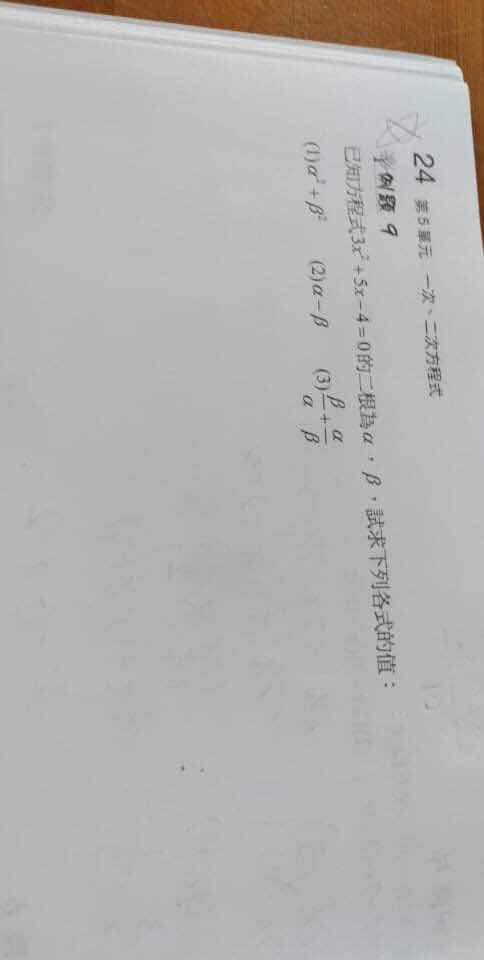 24 第5單元 一次、二次方程式
例題 9
已知方程式3x²+5x-4=0的二根為α,β,試求下列各式的值:
(1)α²+β² (2)α-β (3)β/α+α/β